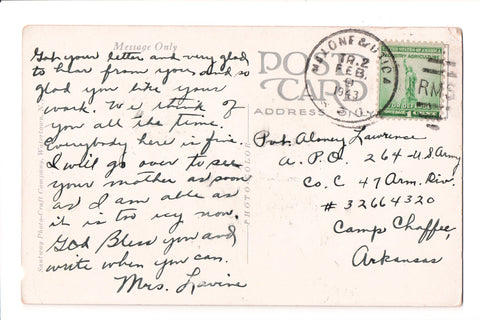 Message Only
Got your letter and very glad
to hear from you and so
glad you like your
work. We think of
you all the time.
Everybody here is fine.
I will go over to see
your mother as soon
as I am able as
it is too icy now.
God Bless you and
write when you can.
Mrs. Lavine
Santway Photo-Craft Company, Watertown, N.
PHOTO COLOR
POST
CARD
ADDRESS
MALONE & UTICA
TR. 2
FEB.
1943
R.P.O.
UNITED STATES OF AMERICA
FOR DEFENSE
RM
Pvt. Aloney Lawrence
A.P.O. 264 U.S. Army
Co. C 47 Arm. Div.
# 32664320
Camp Chaffee,
Arkansas